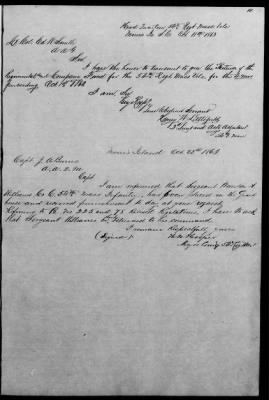 Head Quarters 54th Regt Mass Vols
Morris Id S.C. Oct 18th 1863
Lt. Col. Ed. W. Smith
A. A. G.
Sir
I have the honor to transmit to you the Return of the
Regimental and Company Fund for the 54th Regt Mass Vols. for the
preceding Oct 18th 1863
I am Sir
Very Respfy
Your Obedient Servant
Henry W. Littlefield
2d Lieut and Actg Adjutant
54th Mass
Morris Island Oct 25th 1863
Capt. J.
A. A. Q. M.
Capt
I am informed that Sergeant
Williams Co C. 54th Mass Infantry, has been in the Guard
house and received punishment to day at your request
Referring to and 78 Revised Regulations, I have to ask
that Sergeant Williams be returned to his command.
I remain Respectfully yours
(Signed)
Hooper
Major Comg